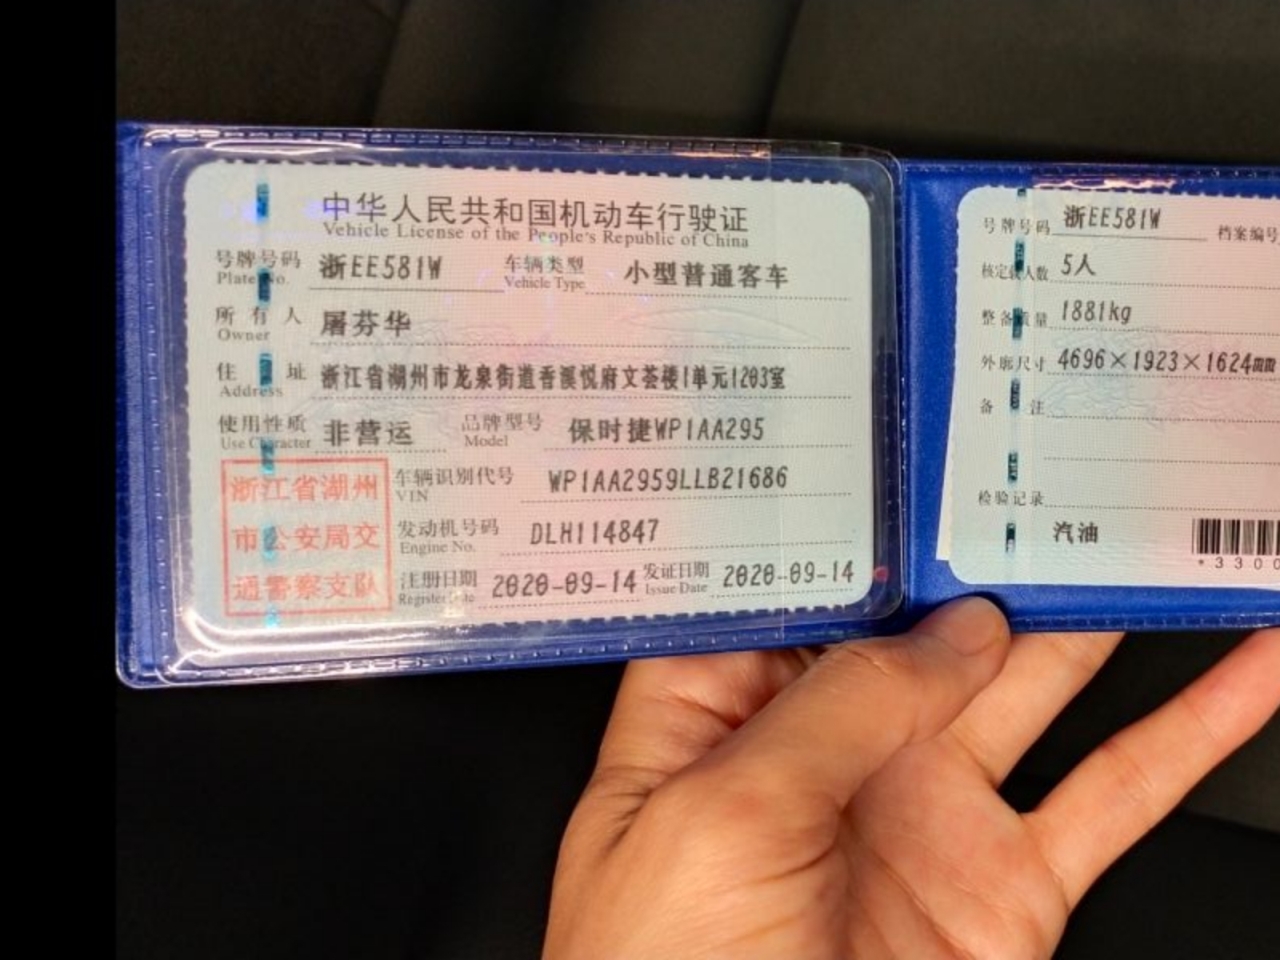 中华人民共和国机动车行驶证
Vehicle License of the People's Republic of China
号牌号码 浙EE581W 车辆类型 小型普通客车
Plate No. Vehicle Type
所有人 屠芬华
Owner
住址 浙江省湖州市龙泉街道香溪悦府文荟楼1单元1203室
Address
使用性质 非营运 品牌型号 保时捷WP1AA295
Use Character Model
车辆识别代号 WP1AA2959LLB21686
VIN
发动机号码 DLH114847
Engine No.
注册日期 2020-09-14 发证日期 2020-09-14
Register Date Issue Date
浙江省湖州
市公安局交
通警察支队
号牌号码 浙EE581W 档案编号
核定载人数 5人
整备质量 1881kg
外廓尺寸 4696×1923×1624mm
备注
检验记录
汽油
*3300